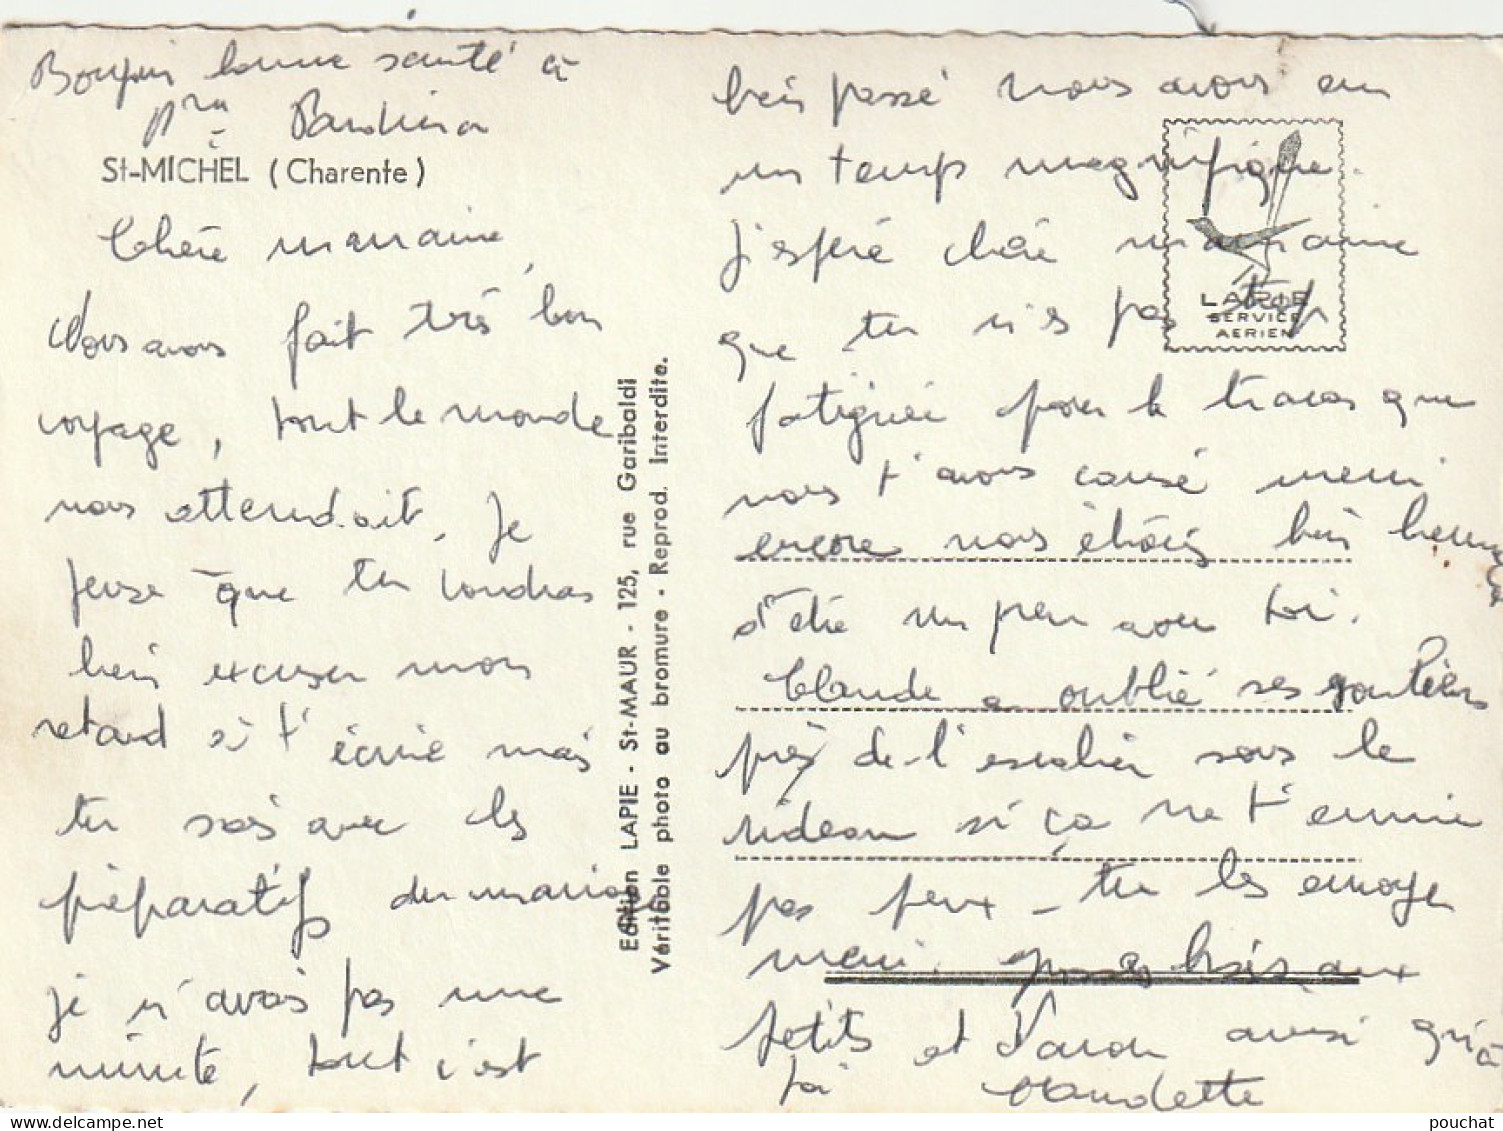 Bonjour bonne santé à
St-MICHEL (Charente)
Chère marraine,
Nous avons fait très bon
voyage, tout le monde
nous attendait. Je
pense que tu voudras
bien excuser mon
retard si t'écrire mais
tu sais avec les
préparatifs du mariage
je n'avais pas une
minute, tout c'est
Edition LAPIE - St-MAUR - 125, rue Garibaldi
Véritable photo au bromure - Reprod. Interdite.
bien passé nous avons eu
un temps magnifique.
J'espère chère marraine
que tu n'es pas trop
LAPIE
SERVICE
AERIEN
fatiguée pour le tracas que
nous t'avons causé merci
encore nous étions bien heureux
d'être un peu avec toi.
Claude a oublié ses souliers
près de l'escalier sous le
rideau si ça ne t'ennuie
pas peux-tu les envoyer
merci. grosses bises aux
petits et aussi qu'à
toi Claudette
pouchat